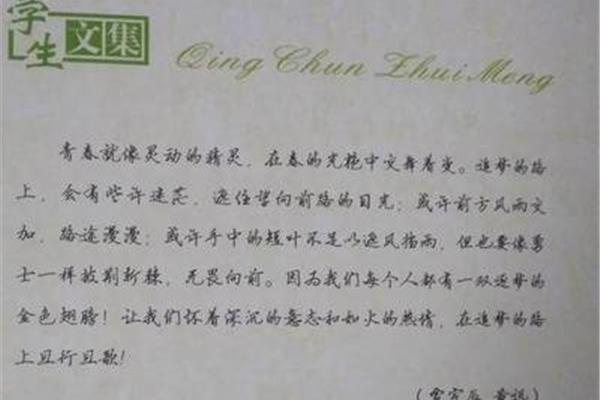 学生文集
Qing Chun Zhui Meng
青春就像灵动的精灵，在春的光艳中交舞着爱。追梦的路
上，会有些许迷茫，遮住望向前路的目光；或许前方风雨交
加，路途漫漫；或许手中的短叶不足以遮风挡雨，但也要像勇
士一样披荆斩棘，无畏向前。因为我们每个人都有一双逐梦的
金色翅膀！让我们怀着深沉的意志和如火的热情，在追梦的路
上且行且歌！